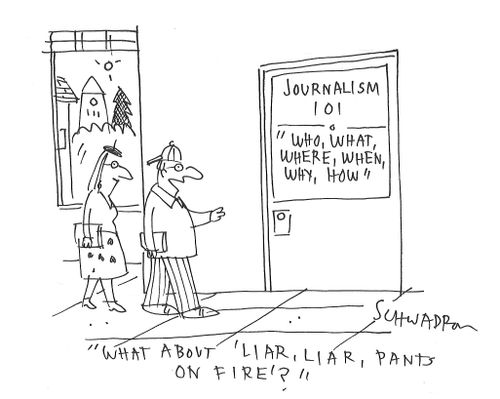 JOURNALISM
101
"WHO, WHAT,
WHERE, WHEN,
WHY, HOW"
SCHWADRON
"WHAT ABOUT 'LIAR, LIAR, PANTS
ON FIRE'?"